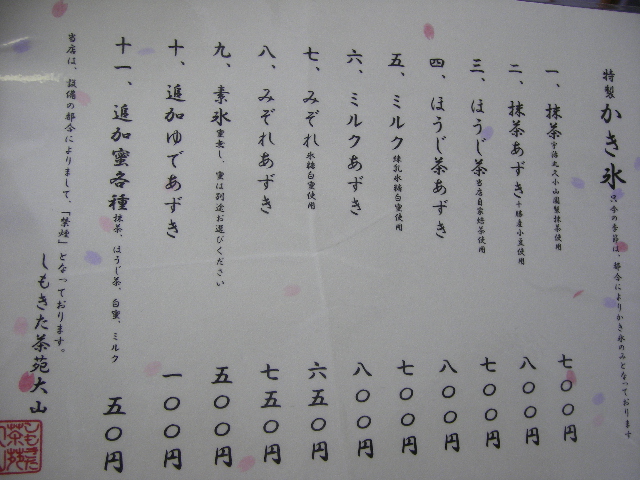 特製 かき氷 只今の季節は、都合によりかき氷のみとなっております
一、抹茶 宇治丸久小山園製抹茶使用 七〇〇円
二、抹茶あずき 十勝産小豆使用 八〇〇円
三、ほうじ茶 当店自家焙茶使用 七〇〇円
四、ほうじ茶あずき 八〇〇円
五、ミルク 練乳氷糖白蜜使用 七〇〇円
六、ミルクあずき 八〇〇円
七、みぞれ 氷糖白蜜使用 六五〇円
八、みぞれあずき 七五〇円
九、素氷 蜜無し、蜜は別途お選びください 五〇〇円
十、追加ゆであずき 一〇〇円
十一、追加蜜各種 抹茶、ほうじ茶、白蜜、ミルク 五〇円
当店は、設備の都合によりまして、「禁煙」となっております。
しもきた茶苑大山
しもきた茶苑